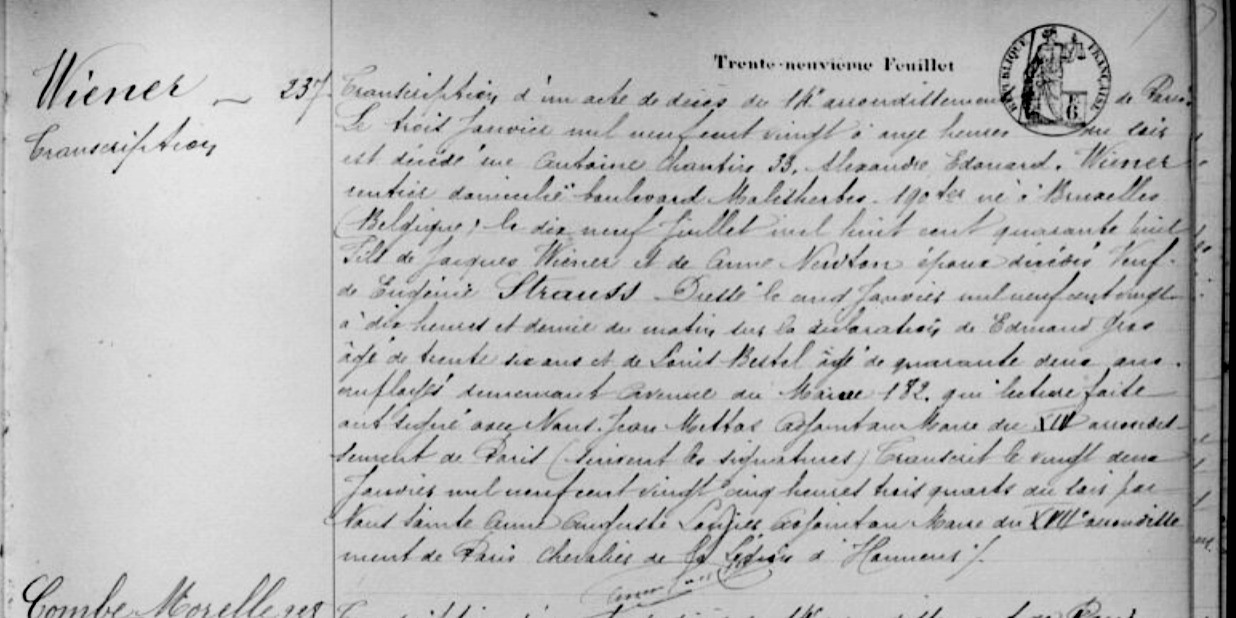 Trente-neuvième Feuillet
RÉPUBLIQUE FRANÇAISE
Wiener 237
Transcription
Transcription d'un acte de décès du 14e arrondissement de Paris.
Le trois Janvier mil neuf cent vingt à onze heures du soir
est décédé rue Antoine Chantin 33. Alexandre, Edouard. Wiener
rentier domicilié boulevard Malesherbes. 190 ter né à Bruxelles
(Belgique) le dix neuf Juillet mil huit cent quarante huit
Fils de Jacques Wiener et de Anne Newton époux décédés Veuf.
de Eugénie Strauss. Dressé le cinq Janvier mil neuf cent vingt
à dix heures et demie du matin sur la déclaration de Edmond Gros
âgé de trente six ans et de Louis Bestel âgé de quarante deux ans.
employés demeurant avenue du Maine 182. qui lecture faite
ont signé avec Nous. Jean Mettas adjoint au Maire du XIV arrondis-
sement de Paris (suivent les signatures) Transcrit le vingt deux
Janvier mil neuf cent vingt cinq heures trois quarts du soir par
Nous Sainte Anne Auguste adjoint au Maire du XVIIe arrondisse
ment de Paris Chevalier de la Légion d'Honneur /.
Combe Morelle 238